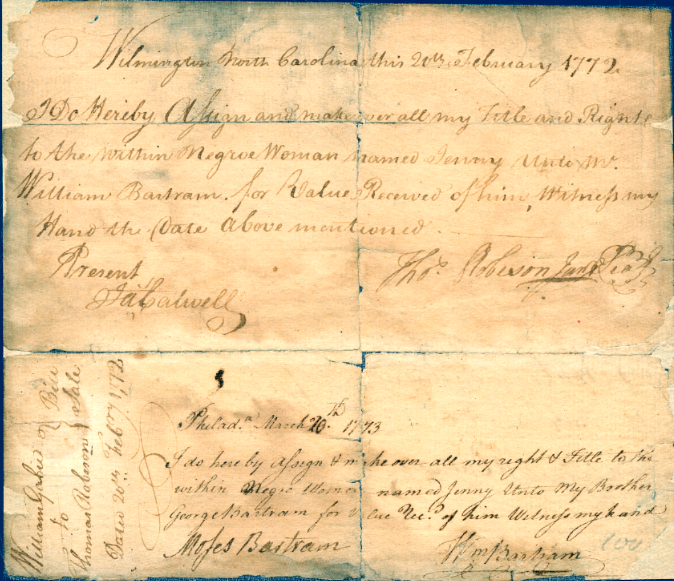 Wilmington North Carolina this 20th February 1772
I Do Hereby Assign and make over all my Title and Right
to the within Negroe Woman named Jenny Unto Mr.
William Bartram for Value Received of him, Witness my
Hand the Date above mentioned.
Present
Thos. Robeson Junr
Jas Calwell
Philada. March 20th 1773
I do hereby Assign & make over all my right & Title to the
within Negro Woman named Jenny Unto My Brother
George Bartram for Value Recd. of him Witness my hand
Moses Bartram
Wm Bartram
100
William
Bill
to
Sale
Thomas Robeson
Dated 20th Feby. 1772